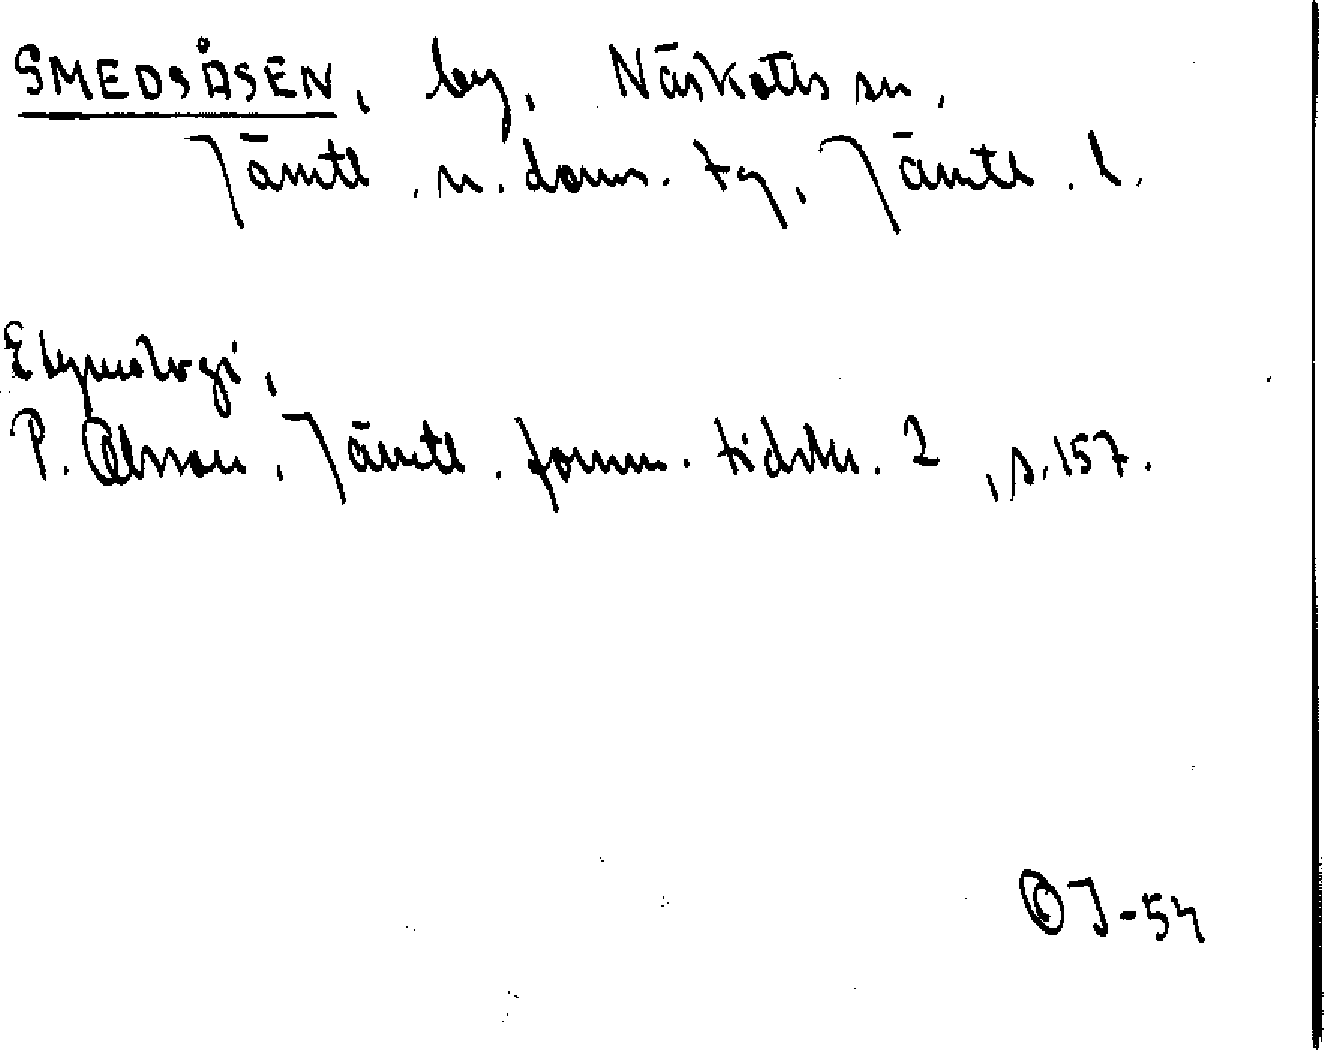 SMEDSÅSEN, by, Näskotts sn,
Jämtl. n. doms. tg, Jämtl. l.
Etymologi,
P. Olsson, Jämtl. fornm. tidskr. 2, s. 157.
OJ-54